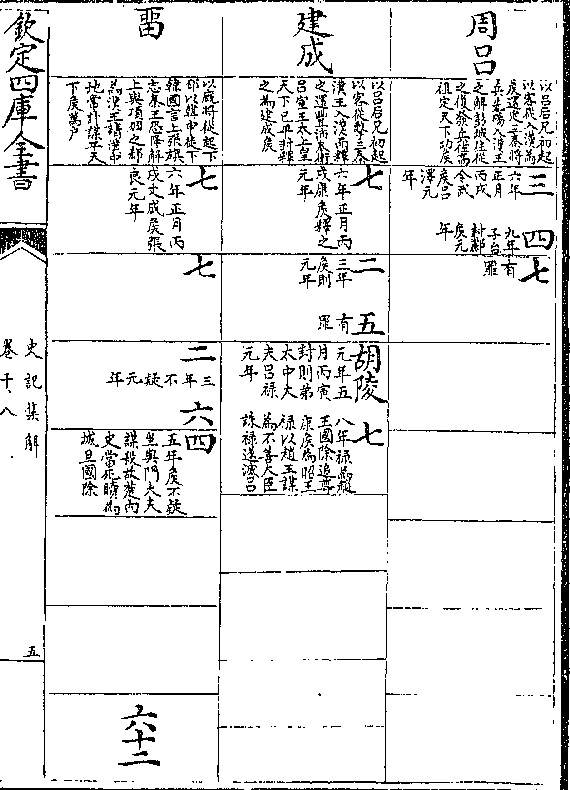 周呂
以呂后兄初起
以客從入漢為
侯還定三秦將
兵先碭入漢王
之解彭城往從
之復發兵佐高
祖定天下功侯
三
六年
正月
丙戌
令武
侯呂
澤元
年
四
九年
子台
封酈
侯元
年
七
有罪
建成
以呂后兄初起
以客從擊三秦
漢王入漢而釋
之還豐沛奉衛
呂宣王太上皇
天下已平封釋
之為建成侯
七
六年正月丙
戌康侯釋之
元年
二
三年
侯則
元年
有罪
五
胡陵
元年五
月丙寅
封則弟
太中大
夫呂祿
元年
七
八年祿為趙
王國除追尊
康侯為昭王
祿以趙王謀
為不善大臣
誅祿遂滅呂
畱
以厩將從起下
邳以韓申徒下
韓國言上張旗
志秦王恐降解
上與項羽之郤
為漢王請漢中
地常計謀平天
下侯萬戶
七
六年正月丙
戌文成侯張
良元年
七
二
三年不疑元年
六
四
五年侯不疑
坐與門大夫
謀殺故楚內
史當死贖為
城旦國除
六十二
欽定四庫全書
史記集解
卷十八
五